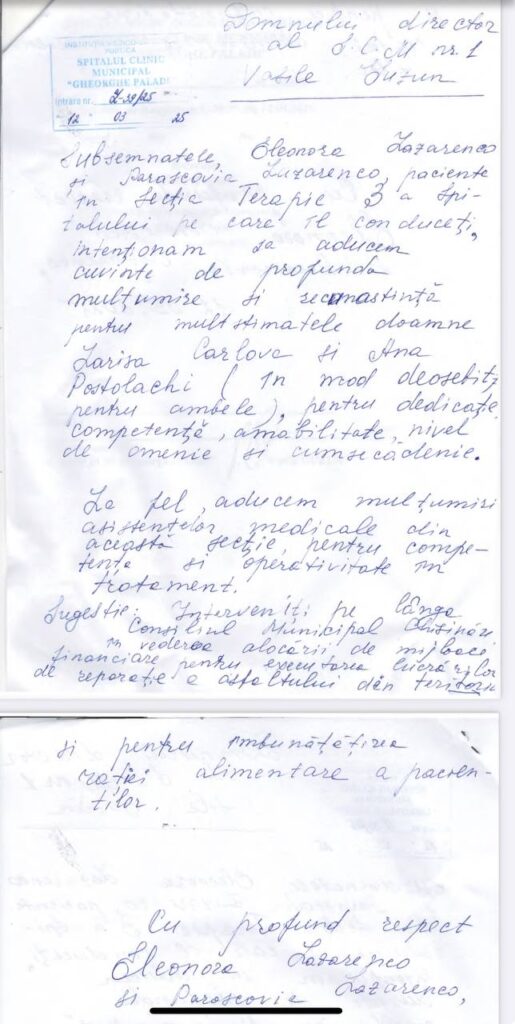 Domnului director
al S.C.M nr. 1
Vasile Guzun
SPITALUL CLINIC
MUNICIPAL
"GHEORGHE PALADI
Intrare nr. Z-39/25
12 03 25
Subsemnatele, Eleonora Lazarenco
și Parascovia Lazarenco, paciente
în Secția Terapie 3 a Spi-
talului pe care îl conduceți,
intenționam să aducem
cuvinte de profunda
mulțumire și recunostință
pentru multstimatele doamne
Larisa Carlova și Ana
Postolachi (în mod deosebit,
pentru ambele), pentru dedicație,
competență, amabilitate, nivel
de omenie și cumsecădenie.
La fel, aducem mulțumiri
asistentelor medicale din
această secție, pentru compe-
tența și operativitate în
tratament.
Sugestie: Interveniți pe lângă
Consiliul Municipal Chișinău
în vederea alocării de mijloace
financiare pentru executarea lucrărilor
de reparație a asfaltului din teritoriu
și pentru îmbunătățirea
rației alimentare a pacien-
ților.
Cu profund respect
Eleonora Lazarenco
și Parascovia Lazarenco,